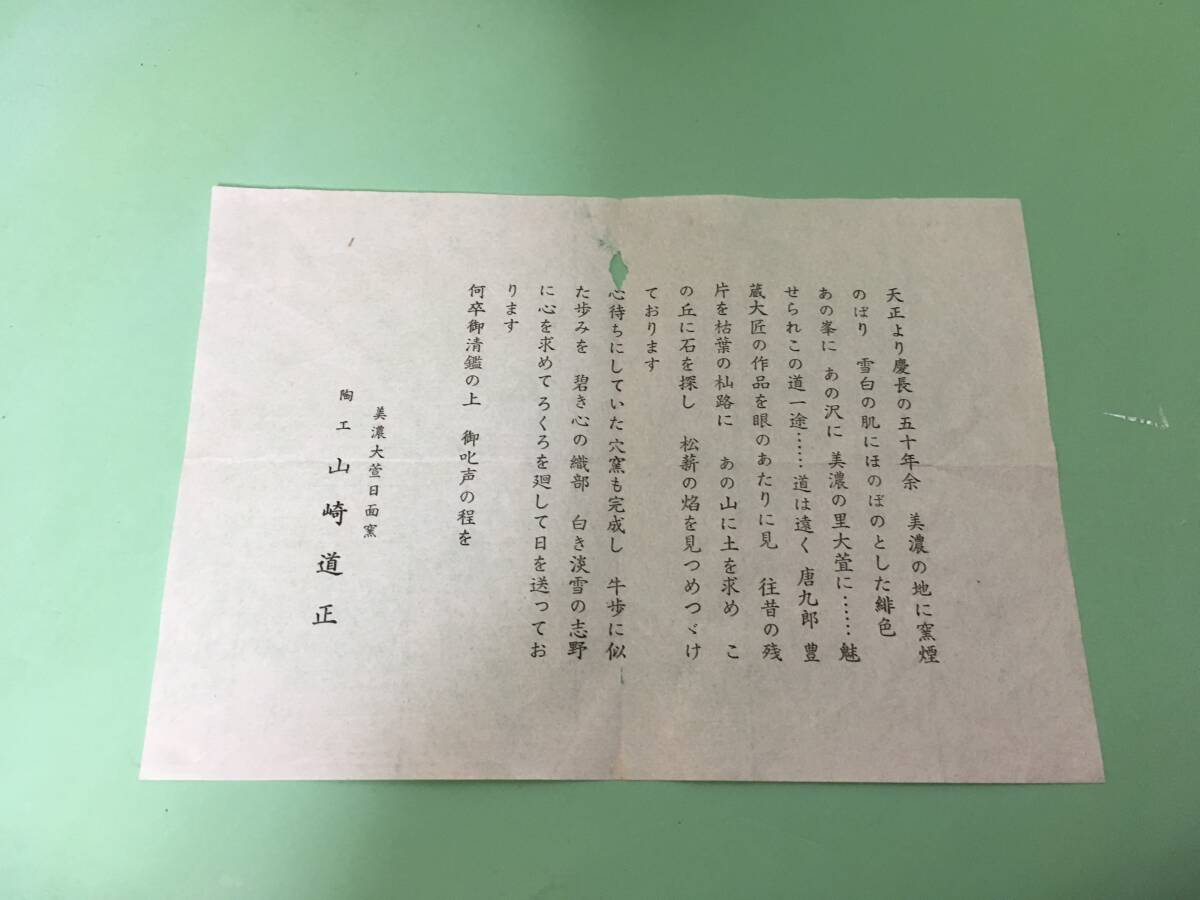 天正より慶長の五十年余　美濃の地に窯煙
のぼり　雪白の肌にほのぼのとした緋色
あの峯に　あの沢に　美濃の里大萱に……魅
せられこの道一途……道は遠く　唐九郎　豊
蔵大匠の作品を眼のあたりに見　往昔の残
片を枯葉の杣路に　あの山に土を求め　こ
の丘に石を探し　松薪の焰を見つめつゞけ
ております
心待ちにしていた穴窯も完成し　牛歩に似
た歩みを　碧き心の織部　白き淡雪の志野
に心を求めてろくろを廻して日を送ってお
ります
何卒御清鑑の上　御叱声の程を
美濃大萱日面窯
陶工　山崎道正